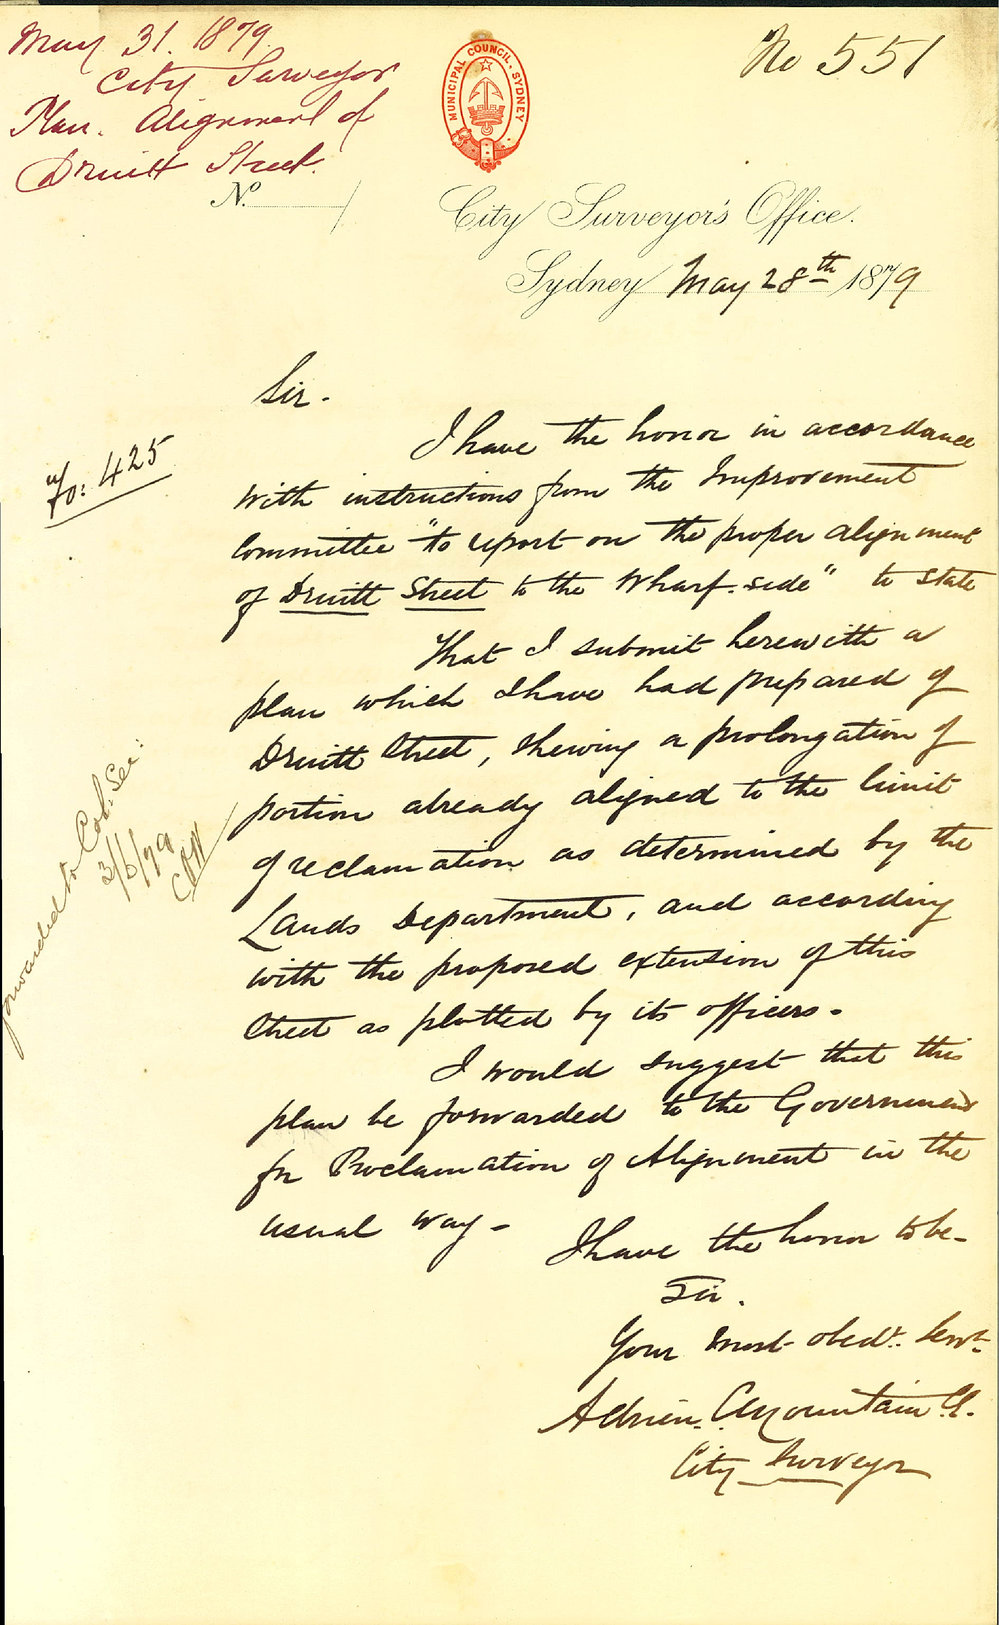 May 31. 1879.
City Surveyor
Plan. Alignment of
Druitt Street.
No 551
MUNICIPAL COUNCIL. SYDNEY
No.
City Surveyor's Office.
Sydney May 28th 1879
Sir.
I have the honor in accordance
with instructions from the Improvement
Committee "to report on the proper alignment
of Druitt Street to the Wharf-side" to state
That I submit herewith a
plan which I have had prepared of
Druitt Street, shewing a prolongation of
portion already aligned to the limit
of reclamation as determined by the
Lands Department, and according
with the proposed extension of this
Street as plotted by its officers.
I would suggest that this
plan be forwarded to the Government
for Proclamation of Alignment in the
usual way-
I have the honor to be-
Sir.
Your most obedt. servt.
Adrien. C. Mountain
City Surveyor
425
forwarded to Col. Sec:
3/6/79